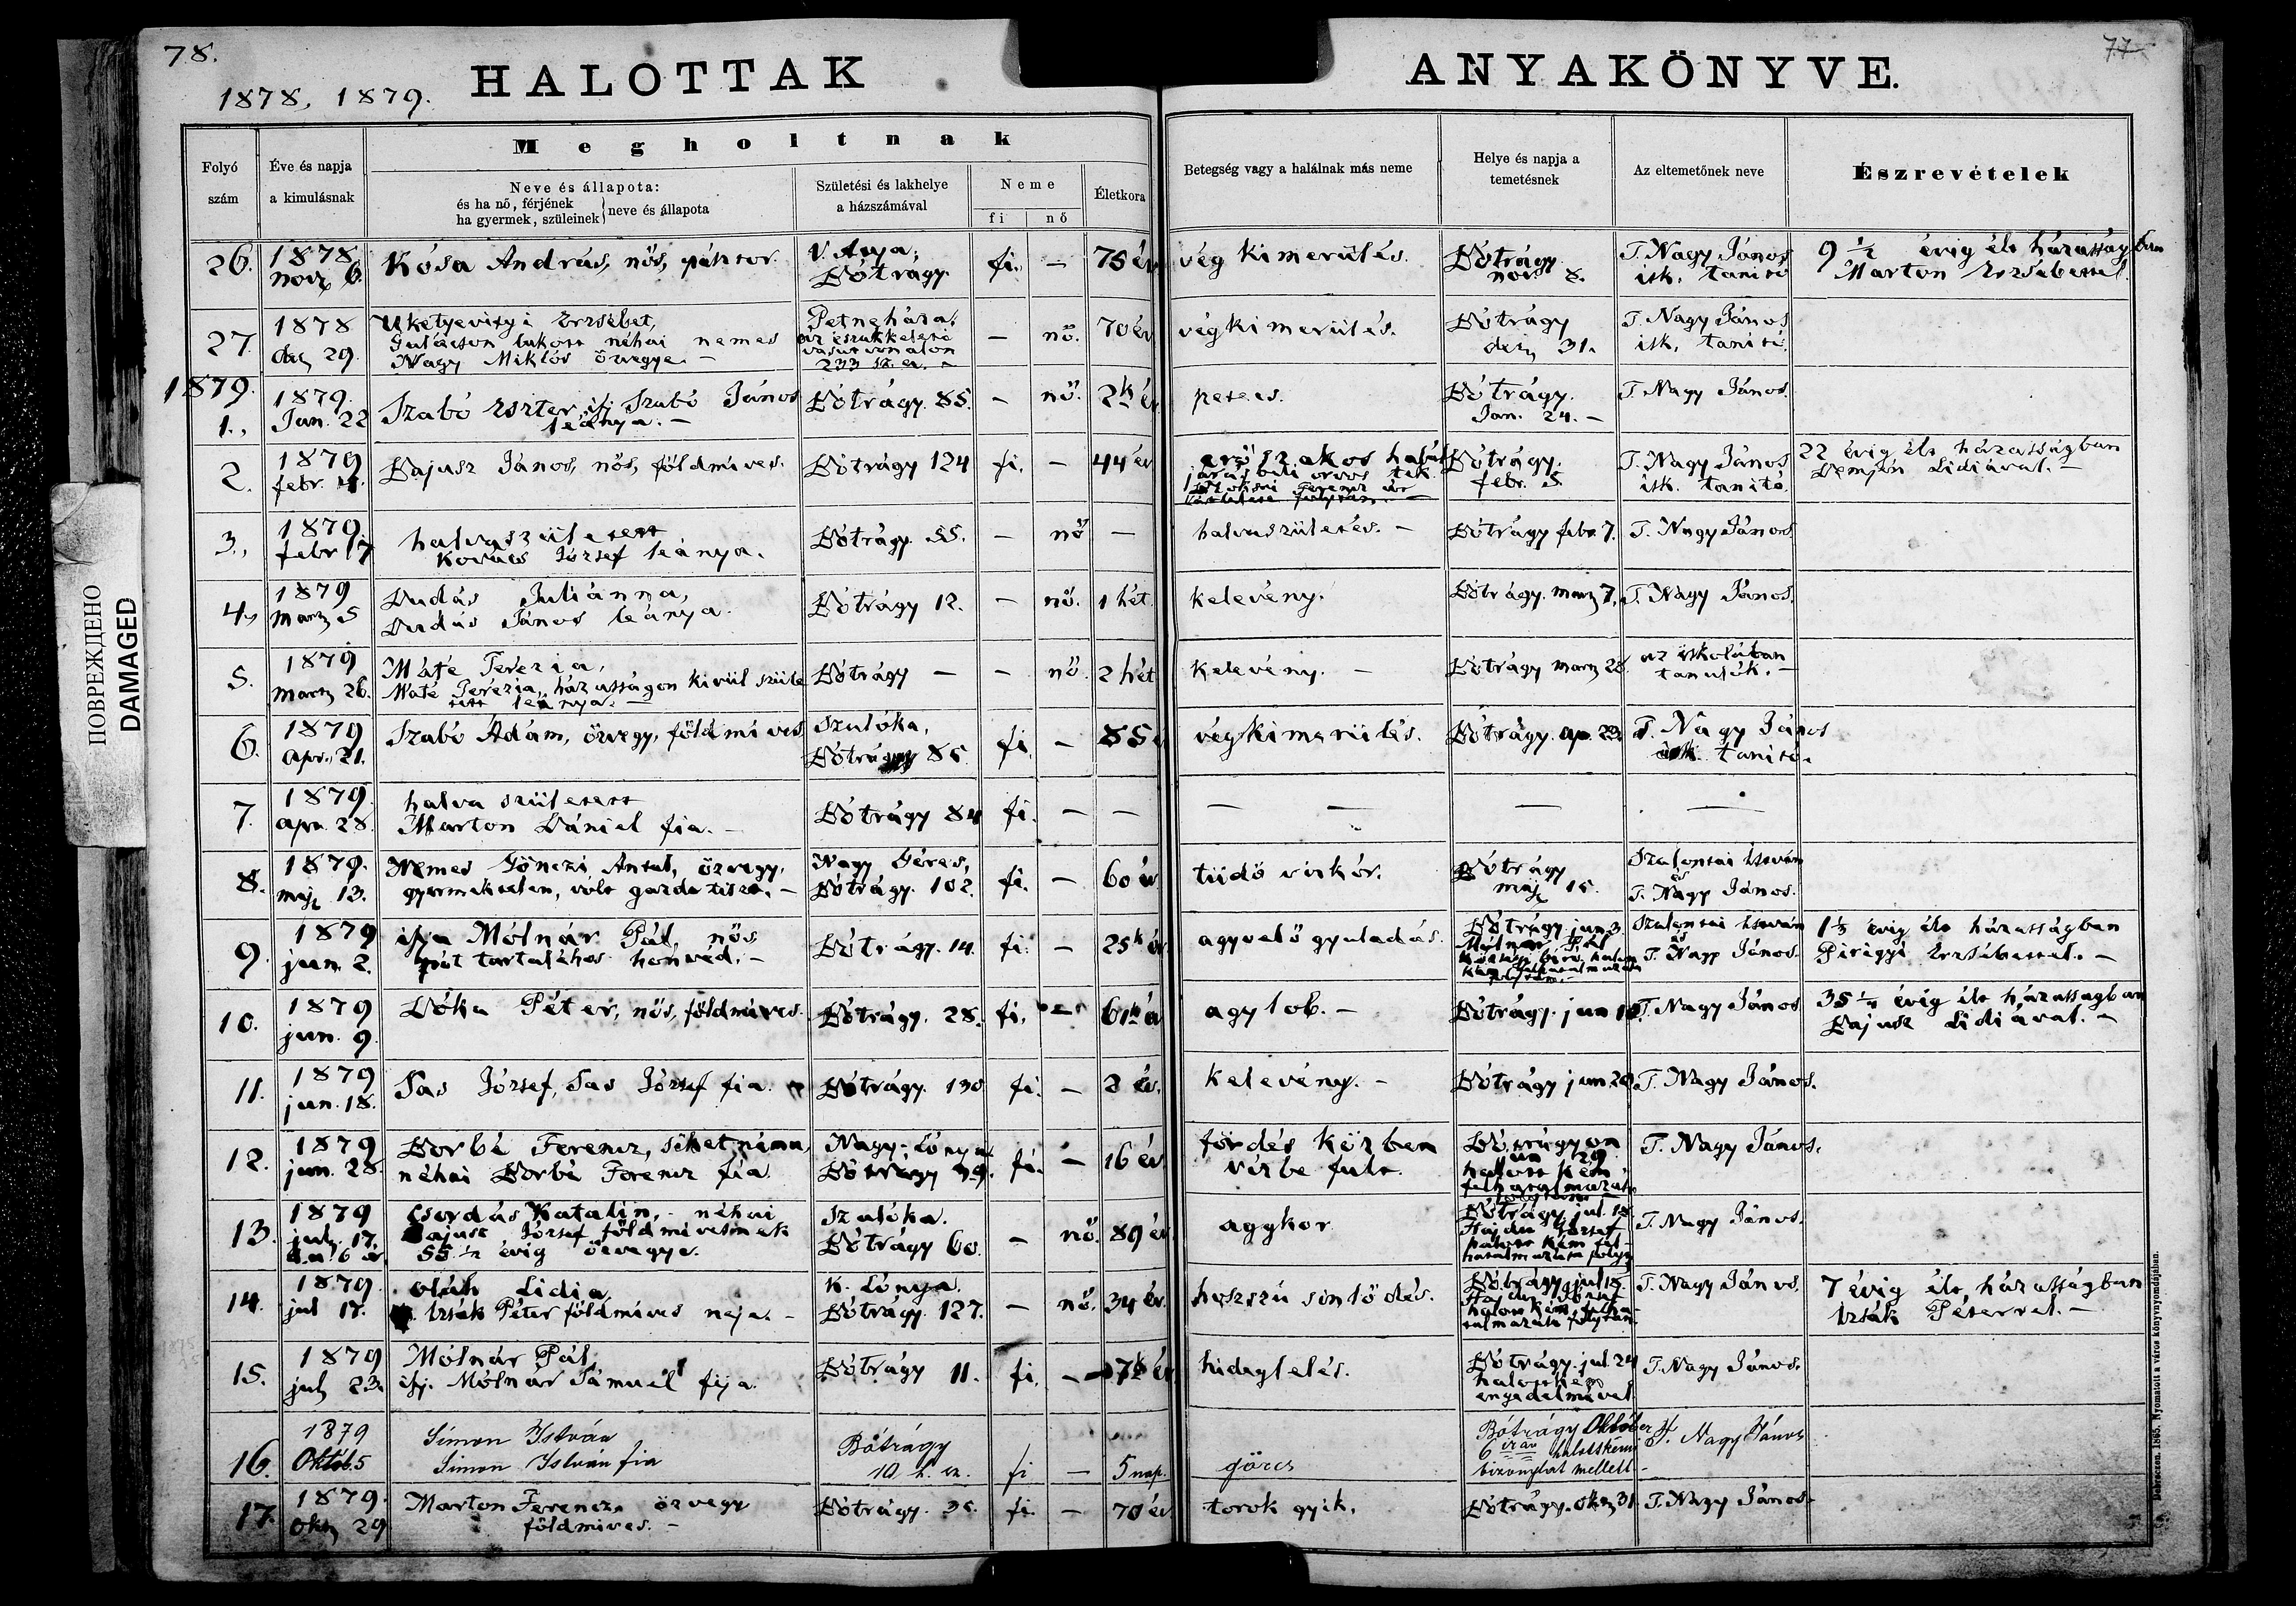 78.
77
HALOTTAK
ANYAKÖNYVE.
1878, 1879.
ПОВРЕЖДЕНО
DAMAGED
Megholtnak
Folyó szám
Éve és napja a kimulásnak
Neve és állapota:
és ha nő, férjének
ha gyermek, szüleinek } neve és állapota
Születési és lakhelye a házszámával
Neme
fi
nő
Életkora
Betegség vagy a halálnak más neme
Helye és napja a temetésnek
Az eltemetőnek neve
Észrevételek
26. 1878 nov 6. Kósa András, nős, pásztor. V. Anya, Bótrágy. fi. — 75 év vég kimerülés. Bótrágy nov. 8. T. Nagy János isk. tanitó 9 1/2 évig élt házasságban Marton Erzsébettel.
27. 1878 dec 29. Erzsébet, lakott néhai nemes Nagy Miklós özvegye. — Petneháza, az északkeleti vasut vonalon 233 sz. — nő. 70 év végkimerülés. Bótrágy dec 31. T. Nagy János isk. tanitó.
1879.
1., 1879. Jan. 22 Szabó Eszter, ifj Szabó János leánya. — Bótrágy. 85. — nő. 2 1/2 év petecs. Bótrágy. Jan. 24. — T. Nagy János.
2. 1879 febr. 4. Bajusz János, nős, földmives. Bótrágy 124 fi. — 44 év erőszakos halál járásbeli orvos tek. Ferencz úr folytán. Bótrágy. febr. 5 T. Nagy János isk. tanitó. 22 évig élt házasságban Demjén Lidiával. —
3., 1879 febr 7 halvaszületett Kovács József leánya. Bótrágy. 55. — nő — halvaszületés. — Bótrágy febr 7. T. Nagy János.
4., 1879 marcz 5 Dudás Juliánna, Dudás János leánya. Bótrágy 12. — nő. 1 hét. kelevény. Bótrágy. marcz 7. T. Nagy János.
5. 1879 marcz 26. Máté Terézia, Máté Terézia, házasságon kivül szüle tett leánya. — Bótrágy — — nő. 2 hét kelevény. — Bótrágy marcz 28. az iskolában tanulók. —
6. 1879 apr. 21. Szabó Ádám, özvegy, földmives Szalóka, Bótrágy 85 fi. — 85 é végkimerülés. Bótrágy. ap. 23. T. Nagy János isk. tanitó.
7. 1879 apr. 28. halva született Marton Dániel fia. — Bótrágy 84 fi. — — — — — —
8. 1879. máj 13. Nemes Gönczi Antal, özvegy, gyermektelen, volt gazdatiszt. — Nagy Géres, Bótrágy. 102. fi. — 60 év tüdő vizkór. Bótrágy máj 15. Szalontai István és T. Nagy János.
9. 1879 jun. 2. ifja Mólnár Pál, nős, pót tartalékos honvéd. — Bótrágy. 14. fi. — 25 1/2 év agyvelő gyuladás. Bótrágy jun 3 Mólnár Pál községi biró, halott kém felhatalmazása folytán. — Szalontai István és T. Nagy János. 1 1/2 évig élt házasságban Pirigyi Erzsébettel. —
10. 1879 jun. 9. Dóka Péter, nős, földmives. Bótrágy. 28. fi. — 61 1/2 é agylob. — Bótrágy. jun 10. T. Nagy János 35 1/2 évig élt házasságban Bajusz Lidiával. —
11. 1879 jun. 18. Tas József, Tas József fia. Bótrágy. 130 fi. — 2 év. kelevény. — Bótrágy jun 20 T. Nagy János.
12. 1879 jun. 28. Borbé Ferencz, siketnéma, néhai Borbé Ferencz fia. Nagy-Lónya Bótrágy 79. fi. — 16 év. fördés közben vizbe fult. Bótrágyon jun 29 halott kém felhatalmazása folytán — T. Nagy János.
13. 1879 jul 17. Csordás Katalin, – néhai Bajusz József földmivesnek 55 1/2 évig özvegye. Szalóka. Bótrágy 60. — nő. 89 év. aggkor Bótrágy jul. 18 Hajdu József halott kém felhatalmazása folyt. T. Nagy János.
14. 1879. jul 17. oláh Lidia Izsák Péter földmives neje. — K. Lónya. Bótrágy. 127. — nő. 34 év. hosszú sinlődés. Bótrágy jul 18. Hajdu József halott kém felhatalmazása folytán. T. Nagy János. 7 évig élt, házasságban Izsák Péterrel. —
15. 1879 jul 23. Mólnár Pál, ifj. Mólnár Sámuel fija. Bótrágy 11. fi. — 7 1/2 év hideglelés. Bótrágy. jul. 24 halottkém engedelmével. T. Nagy János.
16. 1879 Október 5 Simon István Simon István fia Bótrágy 10. h. sz. fi — 5 nap. görcs Bótrágy Október 6 án halottkémi bizonylat mellett T. Nagy János
17. 1879. Okt 29 Marton Ferencz, özvegy földmives. — Bótrágy. 35. fi. — 70 év. torok gyik. Bótrágy. okt 31 T. Nagy János.
Debreczen. 1865. Nyomatott a város könyvnyomdájában.